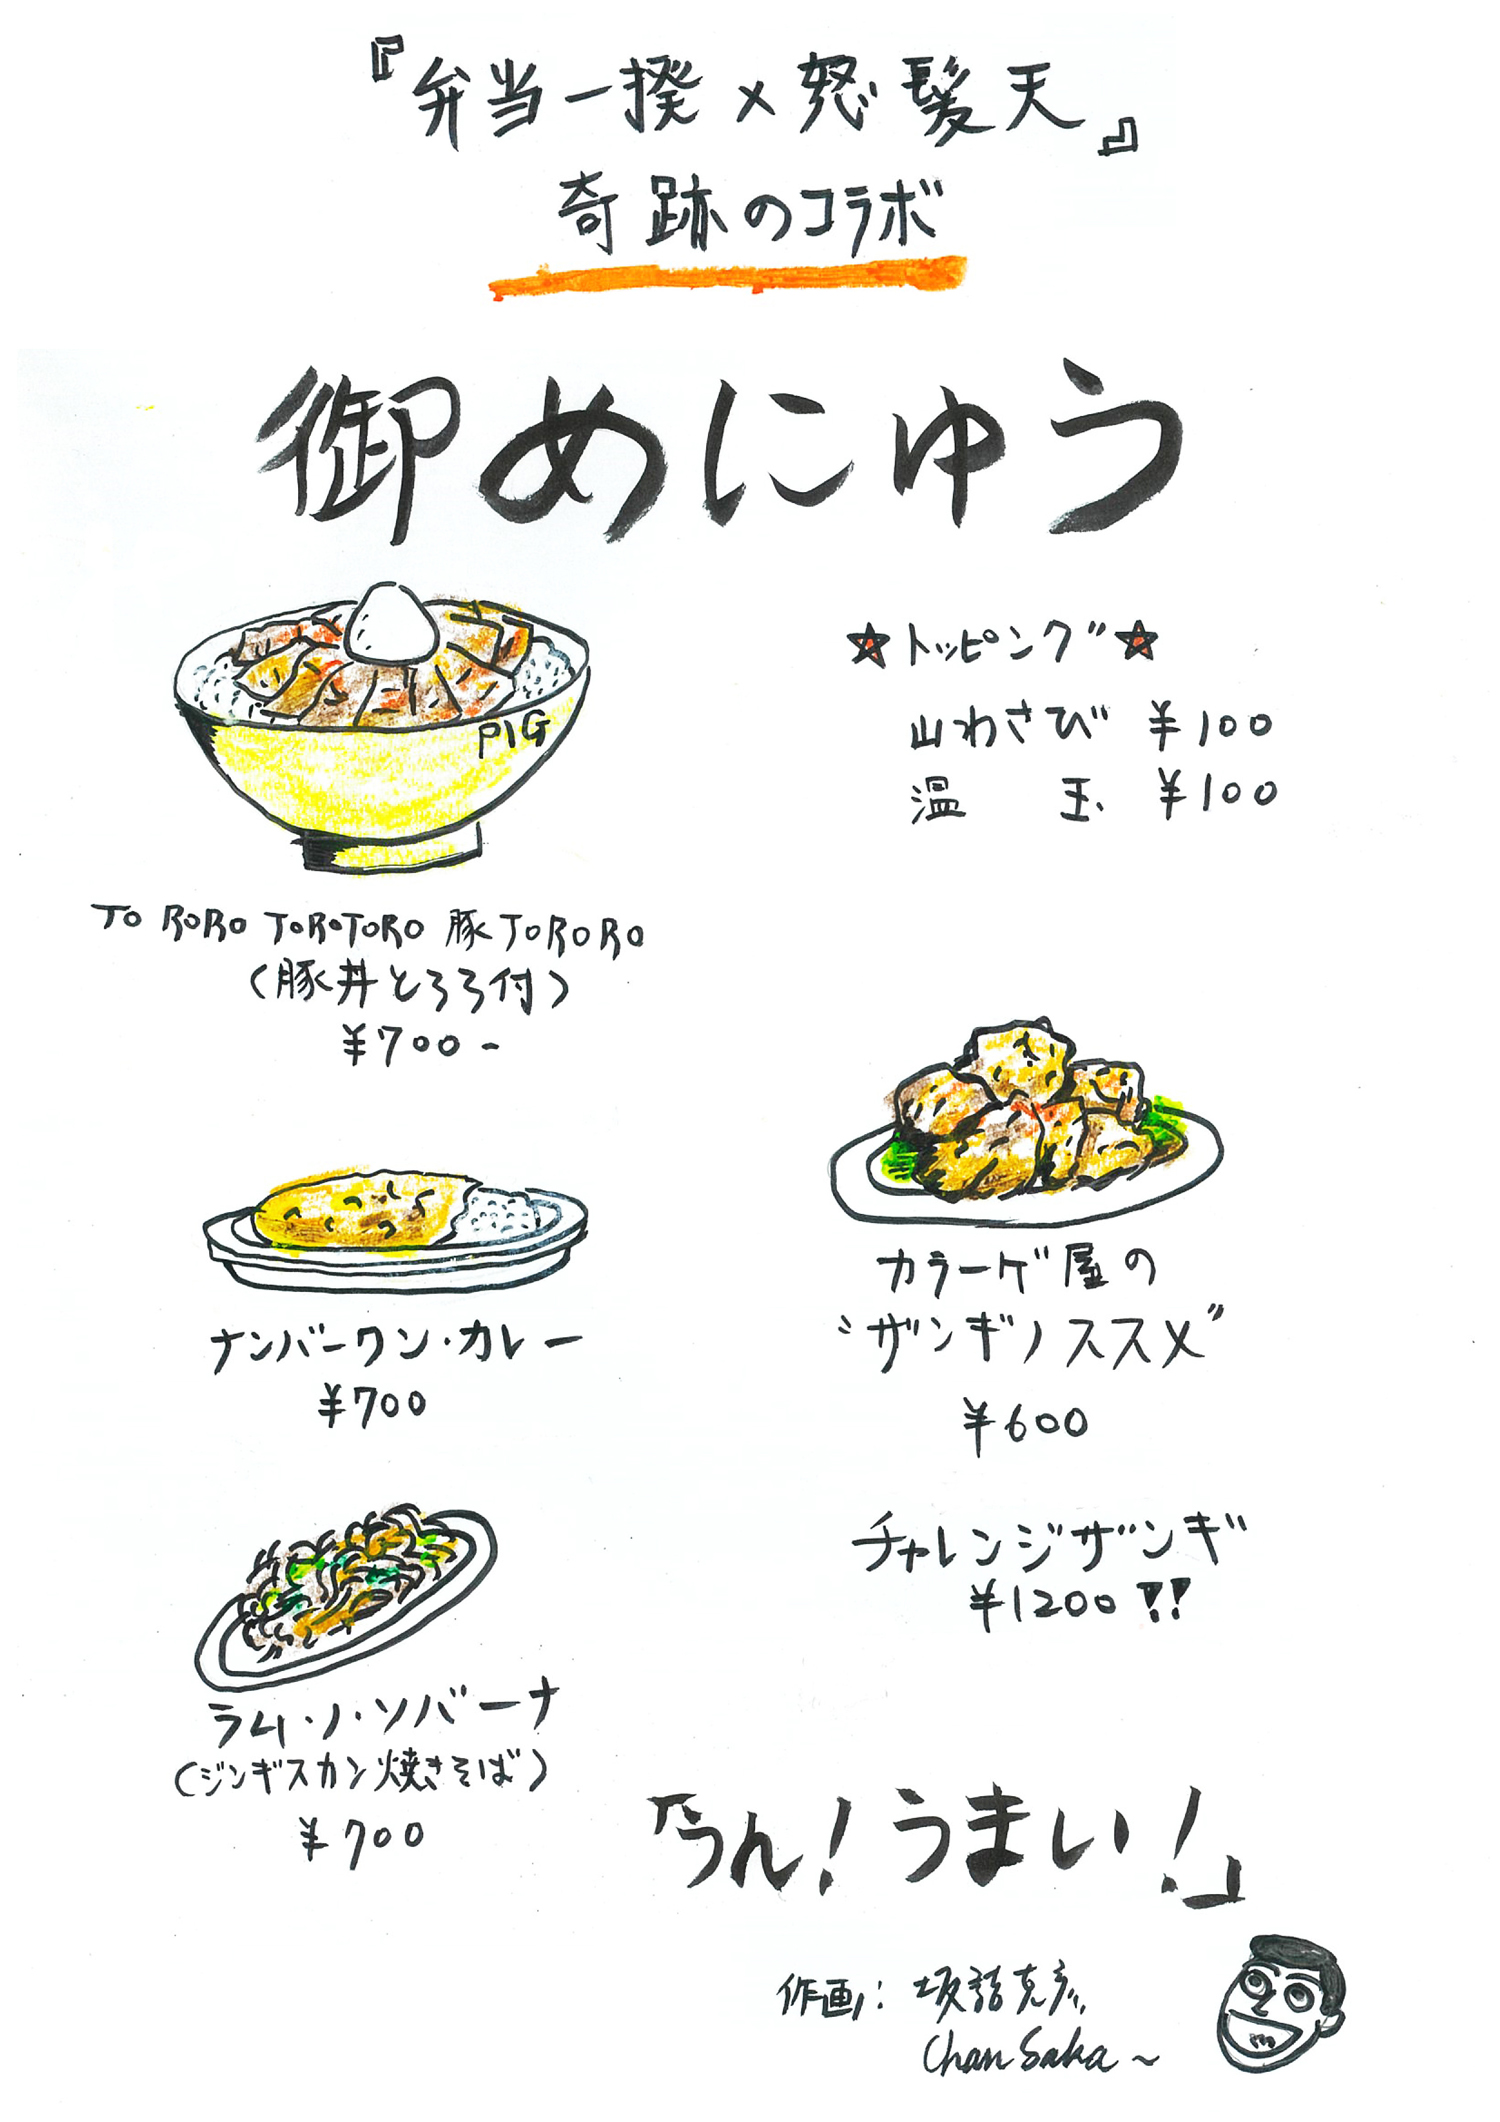 『弁当一揆×怒髪天』
奇跡のコラボ
御めにゅう
PIG
TO RORO TOROTORO 豚 TORORO
(豚丼とろろ付)
¥700-
★トッピング★
山わさび ¥100
温 玉 ¥100
ナンバーワン・カレー
¥700
カラーゲ屋の
"ザンギノススメ"
¥600
チャレンジザンギ
¥1200!!
ラム・ノ・ソバーナ
(ジンギスカン焼きそば)
¥700
「うん!うまい!」
作画:坂詰克彦
Chan Saka~